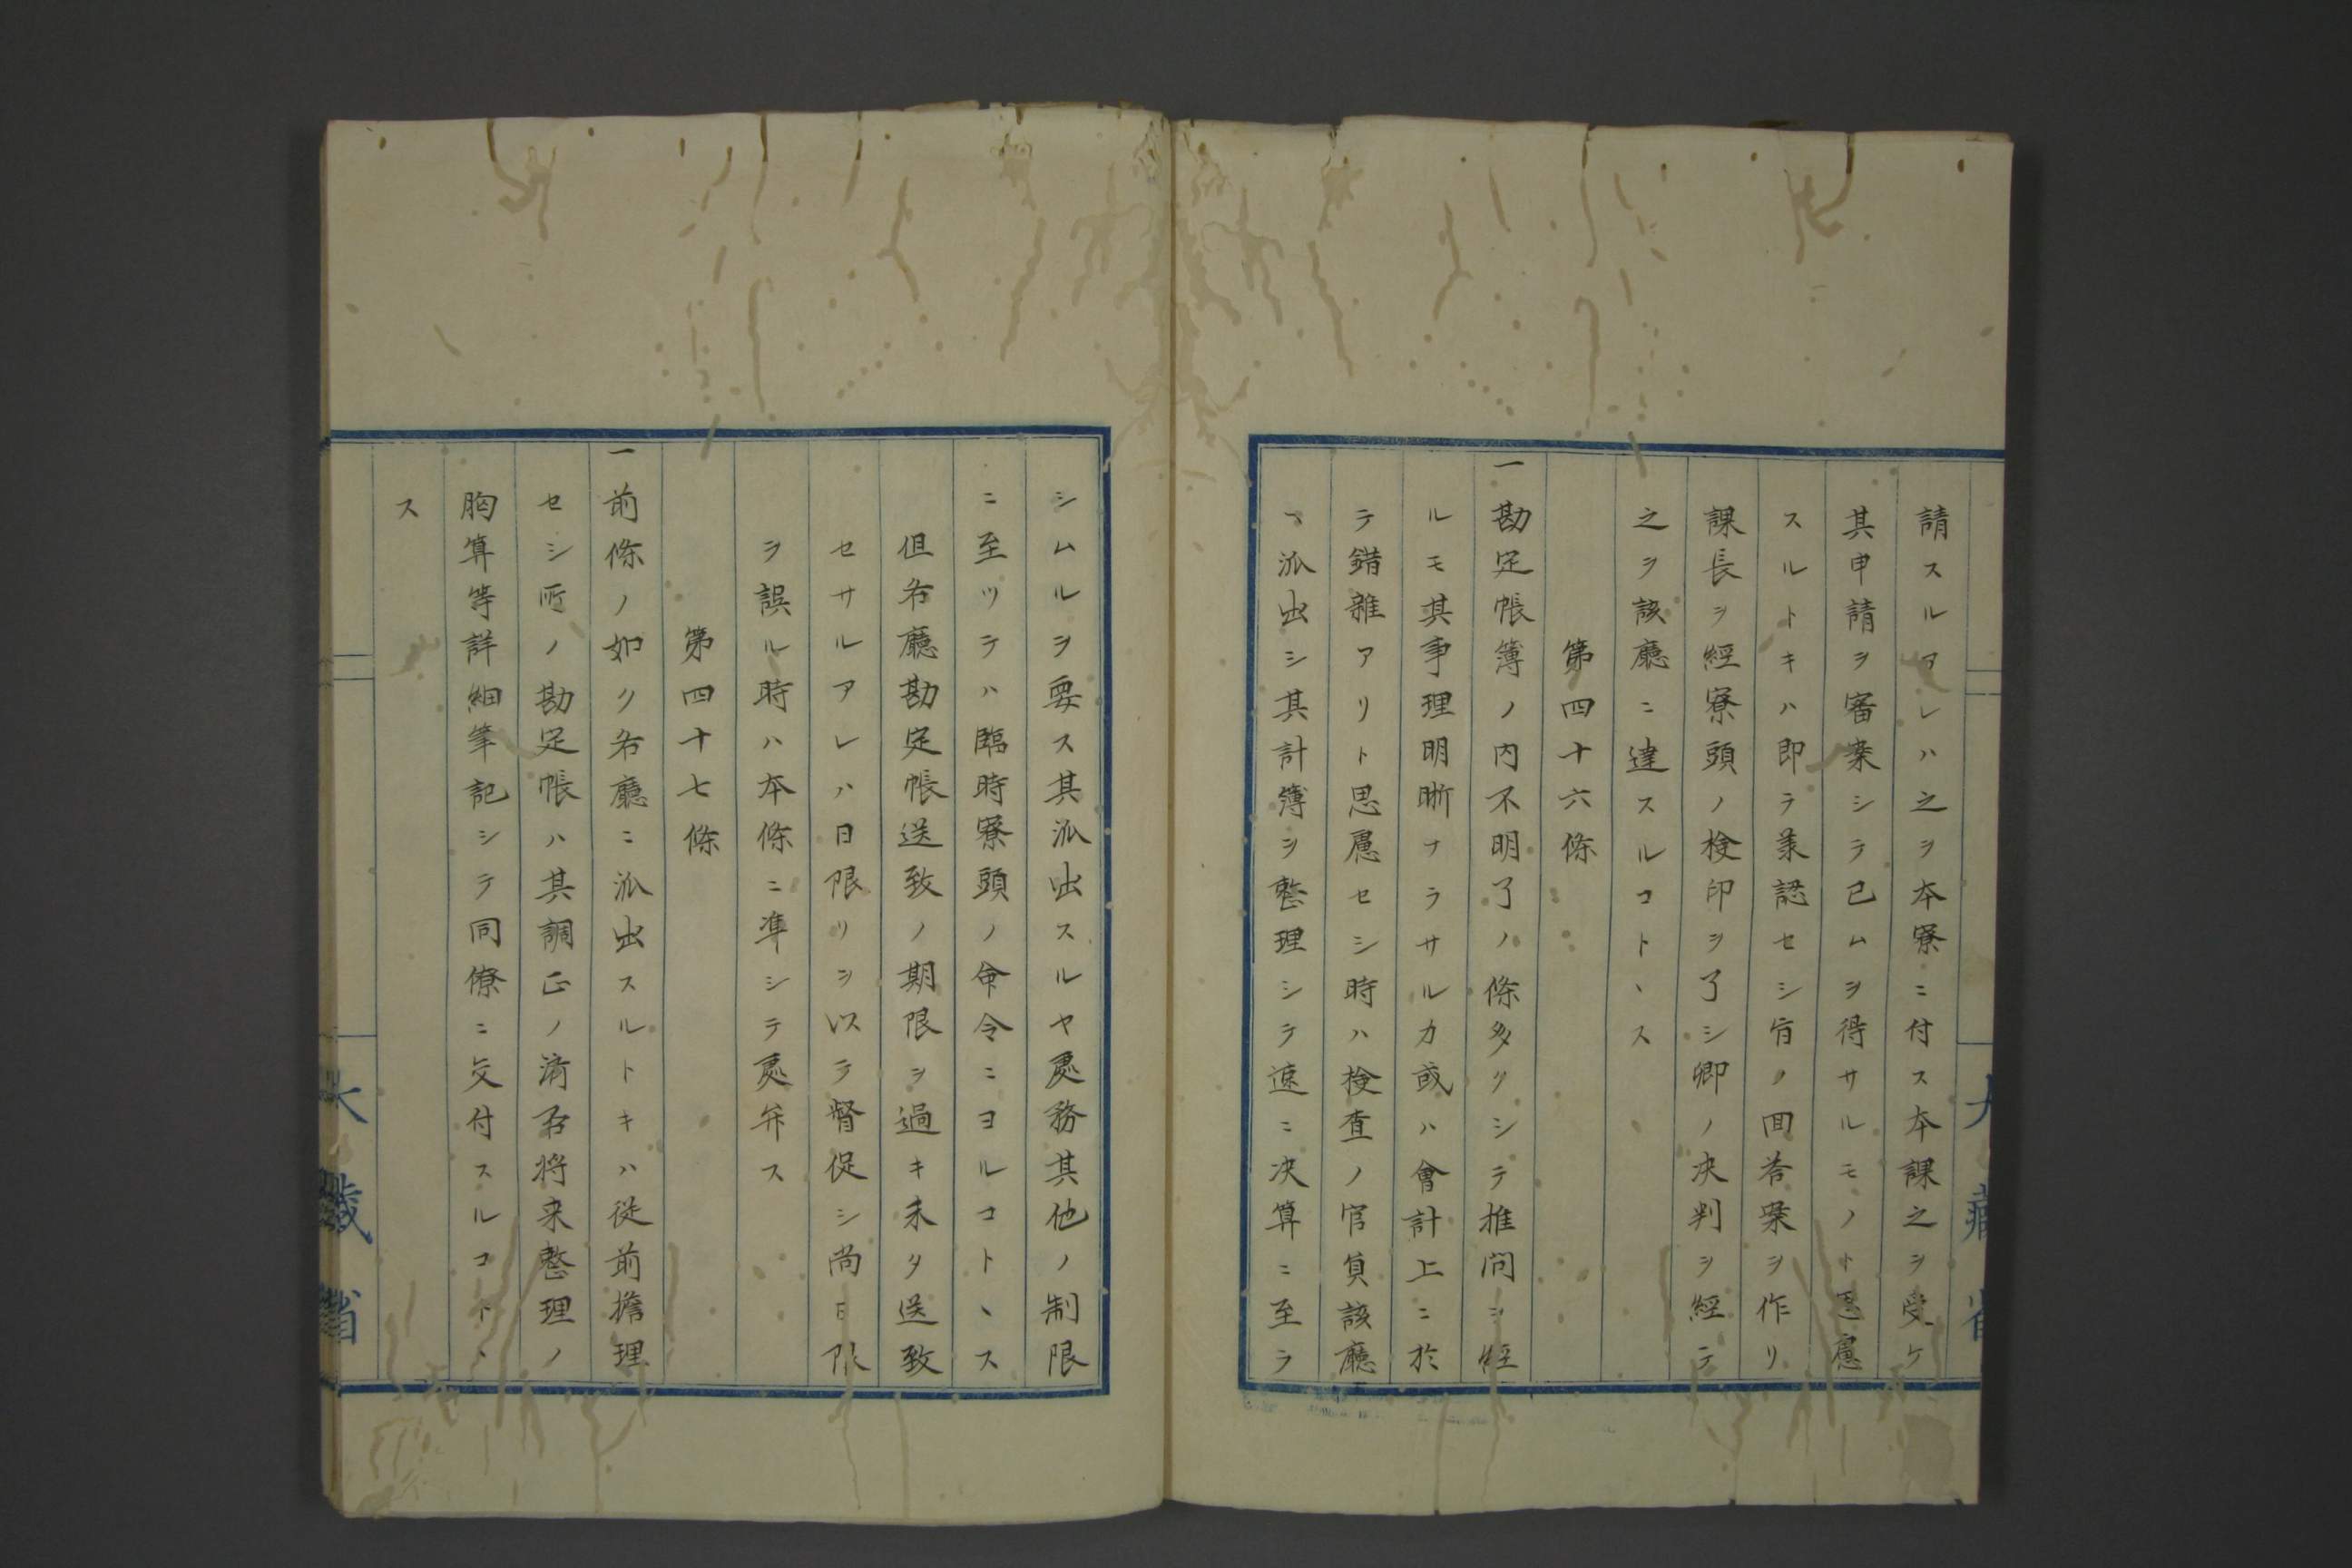 請スルアレハ之ヲ本寮ニ付ス本課之ヲ受ケ
其申請ヲ審案シテ已ムヲ得サルモノト思慮
スルトキハ即チ承認セシ旨ノ回答案ヲ作リ
課長ヲ經寮頭ノ検印ヲ了シ卿ノ决判ヲ經テ
之ヲ該廳ニ達スルコトヽス
第四十六條
一勘定帳簿ノ内不明了ノ條多クシテ推問シ經
ルモ其事理明晰ナラサルカ或ハ會計上ニ於
テ錯雜アリト思慮セシ時ハ検査ノ官員該廳
ヘ派出シ其計簿ヲ整理シテ速ニ决算ニ至ラ
大藏省
シムルヲ要ス其派出スルヤ處務其他ノ制限
ニ至ツテハ臨時寮頭ノ命令ニヨルコトヽス
但各廳勘定帳送致ノ期限ヲ過キ未タ送致
セサルアレハ日限リヲ以テ督促シ尚日限
ヲ誤ル時ハ本條ニ準シテ處弁ス
第四十七條
一前條ノ如ク各廳ニ派出スルトキハ從前擔理
セシ所ノ勘定帳ハ其調正ノ濟否将来整理ノ
胸算等詳細筆記シテ同僚ニ交付スルコトヽ
ス
大藏省